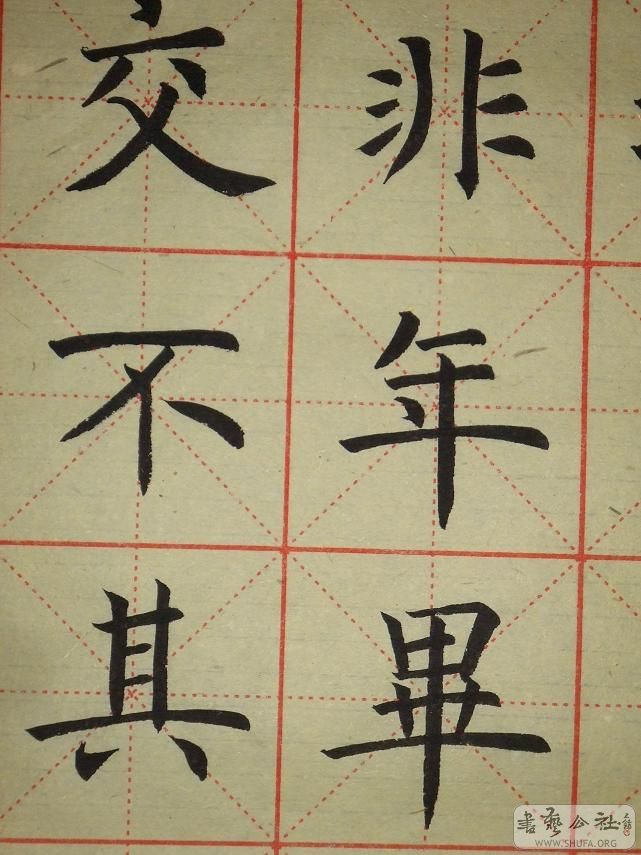 非年畢
交不其
書藝公社
WWW.SHUFA.ORG